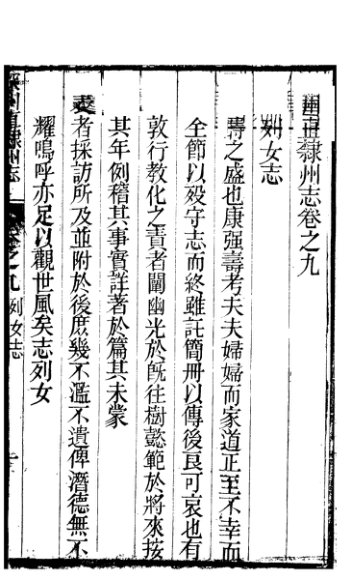 直隸州志卷之九
列女志
之盛也康强壽考夫夫婦婦而家道正至不幸而
全節以殁守志而終雖託簡冊以傳後良可哀也有
敦行教化之責者闡幽光於既往樹懿範於將來按
其年例稽其事實詳著於篇其未蒙
者採訪所及並附於後庶幾不濫不遺俾潛德無不
耀嗚呼亦足以觀世風矣志列女
直隸州志
卷之九 列女志